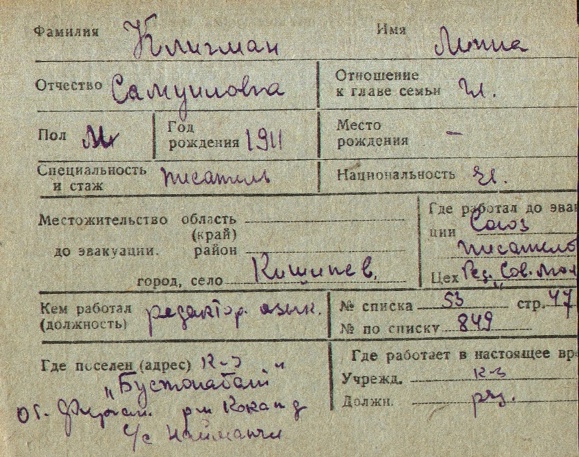 Фамилия Клигман Имя
Отчество Самуиловна Отношение к главе семьи чл.
Пол М Год рождения 1911 Место рождения –
Специальность и стаж писатель Национальность
Местожительство область
(край)
до эвакуации. район
город, село Кишинев.
Где работал до эвак
ции Союз
писатель
Цех Ред. „Сов.
Кем работал (должность) редактор. языK.
№ списка 53 стр. 47
№ по списку 849
Где поселен (адрес) к-з
„Бустонабаш"
Об. Ферган. р-н Коканд
с/с Найманчи
Где работает в настоящее вр
Учрежд. к-з
Должн.